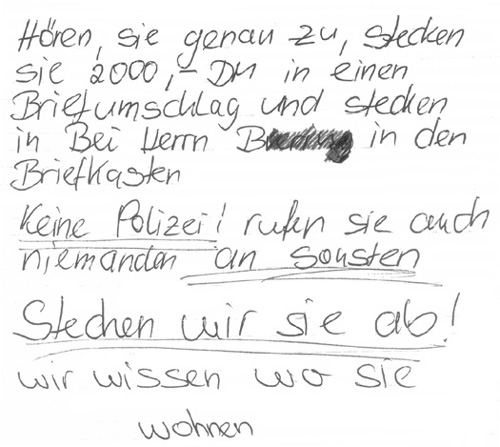 Hören, sie genau zu, stecken
sie 2000,- DM in einen
Briefumschlag und stecken
in Bei Herrn in den
Briefkasten
Keine Polizei! rufen sie auch
niemanden an sonsten
Stechen wir sie ab!
wir wissen wo sie
wohnen